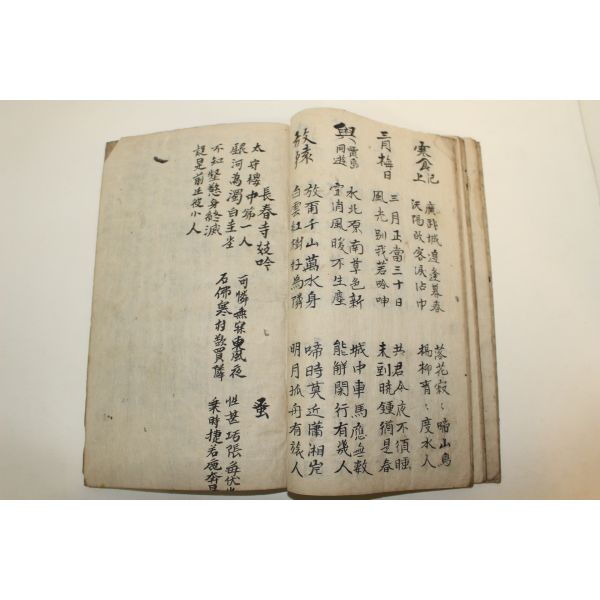 寒食汜上
廣武城邊逢暮春 落花寂〻啼山鳥
汶陽歸客淚沾巾 楊柳青〻度水人
三月晦日
三月正當三十日 共君今夜不須睡
風光別我苦吟呻 未到曉鍾猶是春
與賈島同遊
水北原南草色新 城中車馬應無數
雪消風暖不生塵 能解閑行有幾人
放猿
放爾千山萬水身 啼時莫近瀟湘岸
白雲紅樹好為隣 明月孤舟有旅人
長春寺妓吟
太守樓中第一人 可憐無寐東風夜
銀河為濁白圭 石佛寒村歎買隣
不知 身終滅
是前生役小人
蚤
性甚巧張每伏
乘時捷若